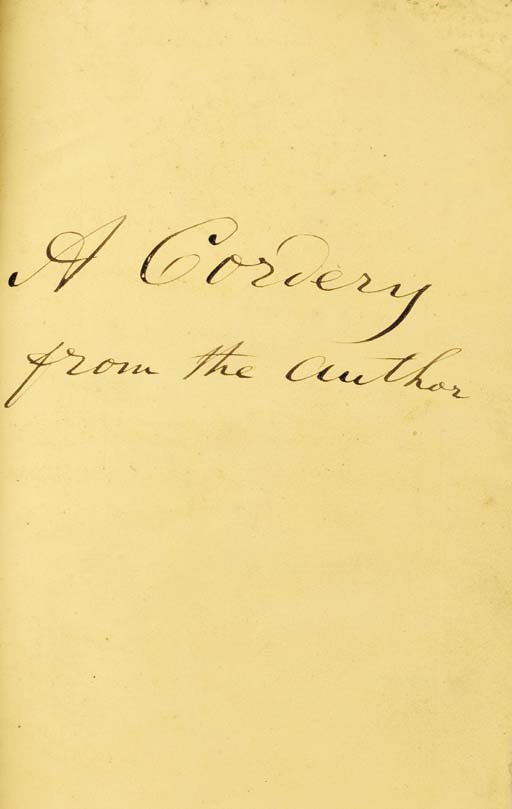 A Cordery
from the author